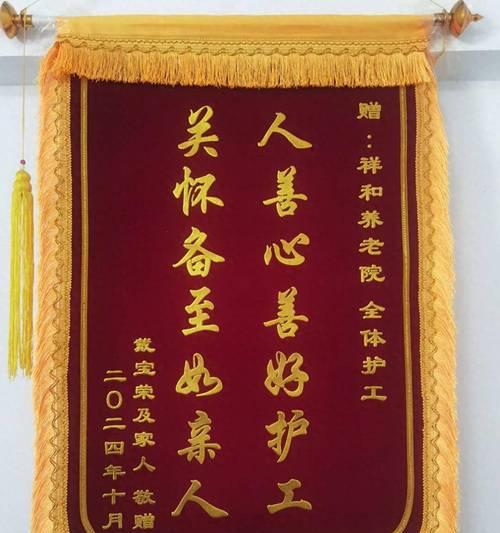 赠：祥和养老院 全体护工
人善心善好护工
关怀备至如亲人
戴宝荣及家人 敬赠
二〇二四年十月